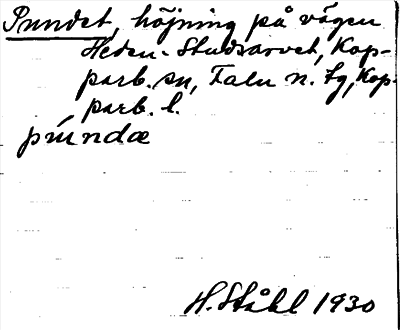 Pundet, höjning på vägen
Heden-Studsarvet, Kop-
parb. sn, Falu n. tg, Kop-
parb. l.
púndæ
H. Ståhl 1930